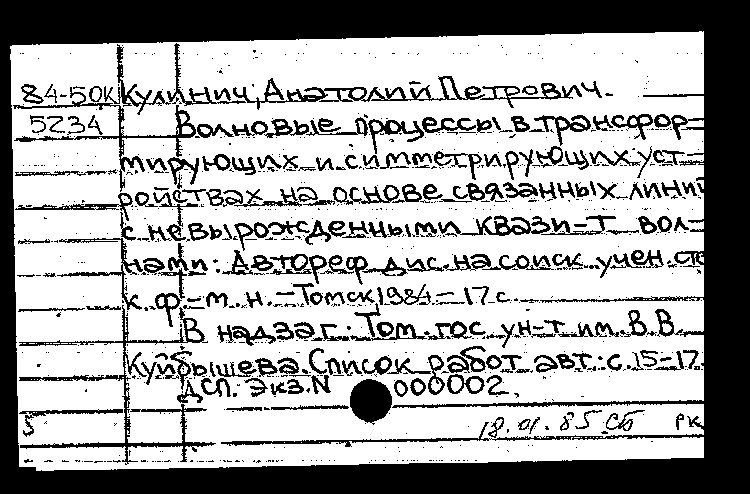 84-50К Кулинич, Анатолий Петрович.
5234 Волновые процессы в трансфор-
мирующих и симметрирующих уст-
ройствах на основе связанных линий
с невырожденными квази-Т вол-
нами: Автореф дис. на соиск учен. сте
к. ф.-м. н. - Томск, 1984 - 17 с
В надзаг: Том. гос ун-т им. В.В.
Куйбышева. Список работ авт.: с. 15-17.
ДСП. Экз. N 000002.
5 18.01.85 СБ РК